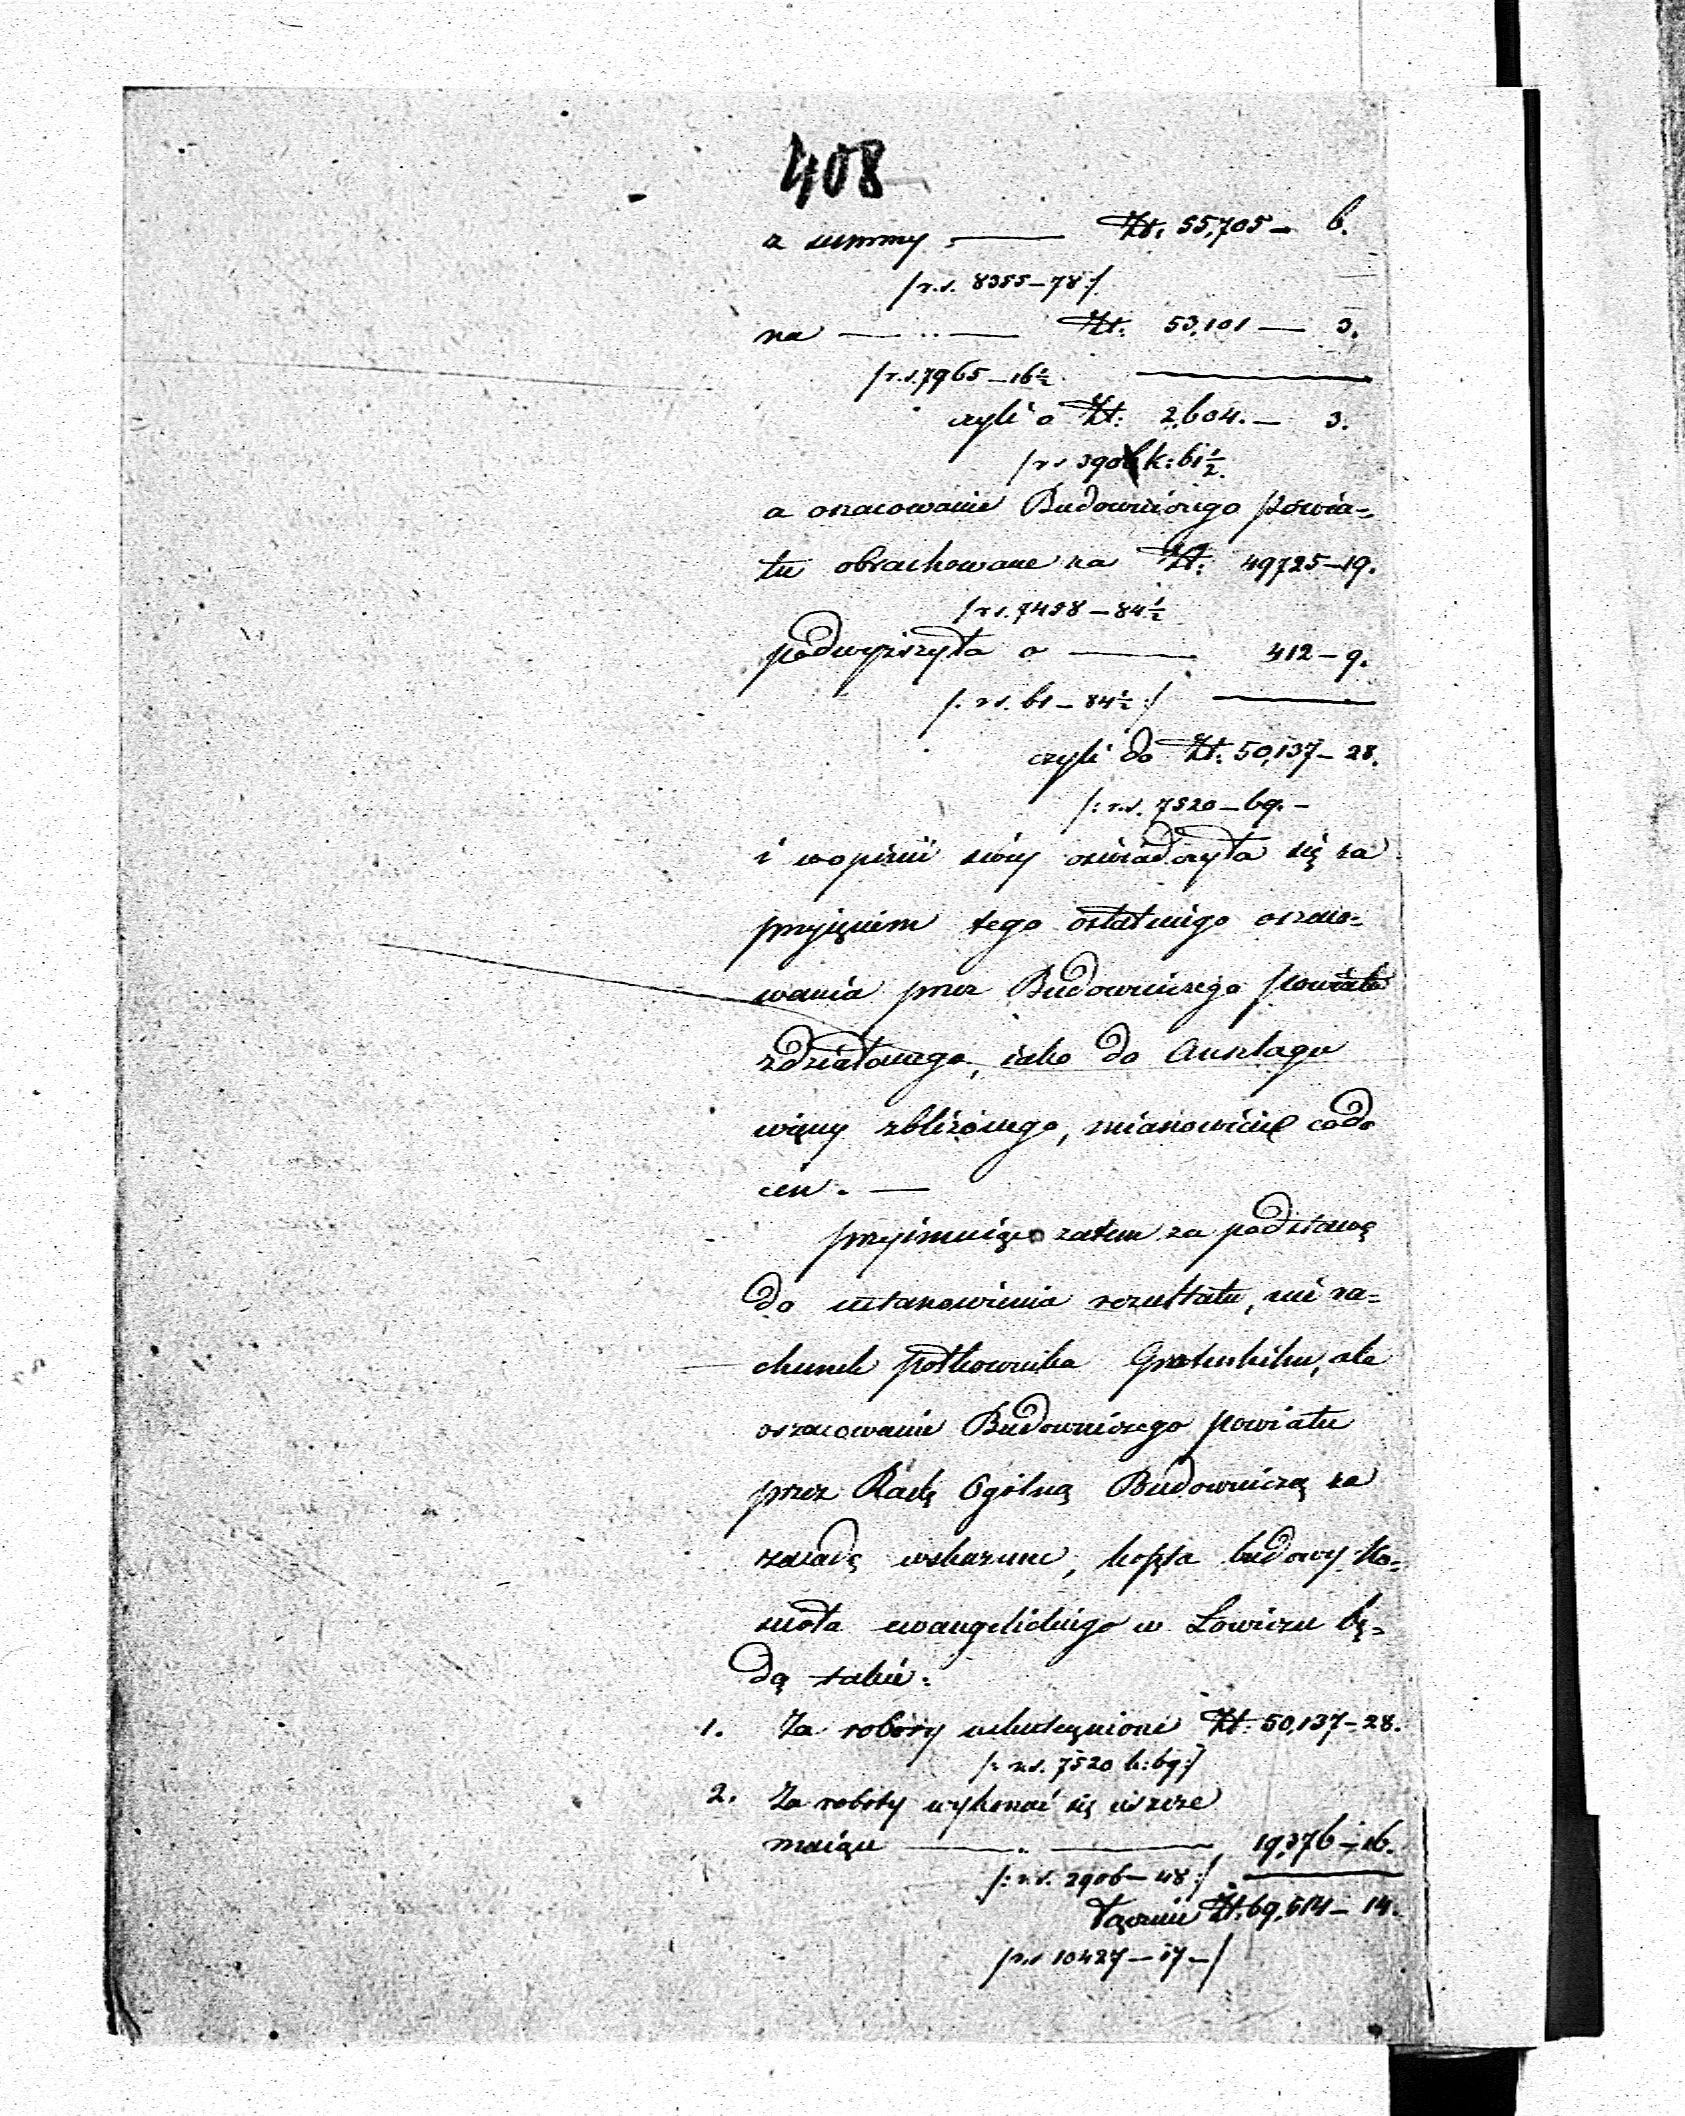 408
z summy ——— Zł. 55,705 — 6.
/r.s. 8355—78:/
na —— .. —— Zł. 53,101 — 3.
/r.s. 7965—16½
czyli o Zł: 2,604. — 3.
/r s 390 k: 61½
a oszacowanie Budowniczego powia=
tu obrachowane na Zł: 49725—19.
/r s. 7458—84½
podwyższyła o ——— 412—9.
/: r s. 61—84½ :/
czyli do Zł. 50,137—28.
/: r.s. 7520—69.—
i w opinii swéy oświadczyła się za
przyjęciem tego ostatniego oszaco=
wania przez Budowniczego powiatu
zdziałanego, iako do Anszlagu
więcey zbliżonego, mianowicie co do
cen. —
przyimuiąc zatem za podstawę
do ustanowienia rezultatu, nie ra=
chunek półkownika ale
oszacowanie Budowniczego powiatu
przez Radę Ogólną Budowniczą za
zasadę wskazane, koszta budowy Ko=
ścioła ewangelickiego w Łowiczu bę=
dą takie:
1. Za roboty uskutecznione Zł. 50,137—28.
/: r.s. 7520 k: 69:/
2. Za roboty wykonać się ieszcze
maiące —— . ——, 19,376—16.
/: r.s. 2906—48:/
Łącznie Zł. 69,514—14.
/r.s 10427—17—/